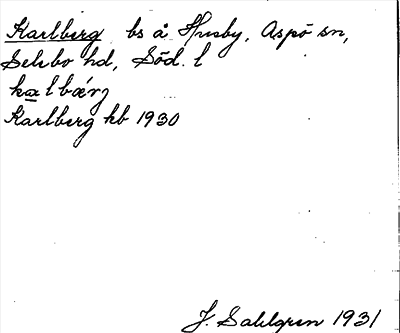 Karlberg bs å Husby, Aspö sn,
Selebo hd, Söd. l
Karlberg kb 1930
J. Sahlgren 1931